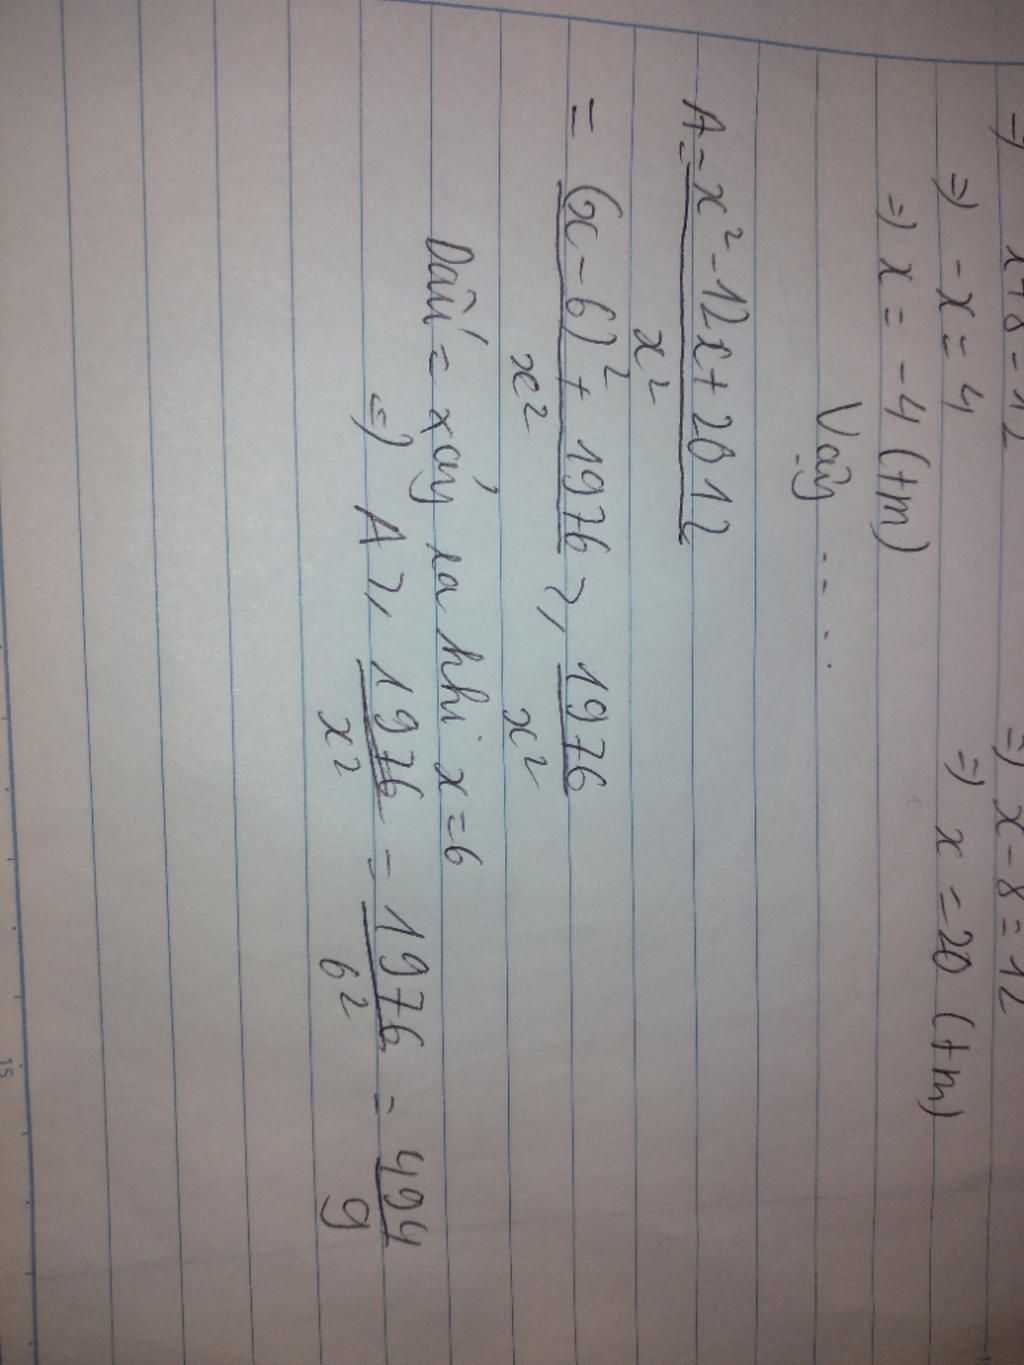 ⇒ x+8=12 ⇒ x-8=12
⇒ -x=4 ⇒ x=20 (tm)
⇒ x=-4 (tm)
Vậy ....
A = (x²-12x+2012)/x²
= ((x-6)²+1976)/x² ≥ 1976/x²
Dấu = xảy ra khi x=6
⇒ A ≥ 1976/x² = 1976/6² = 494/9
15